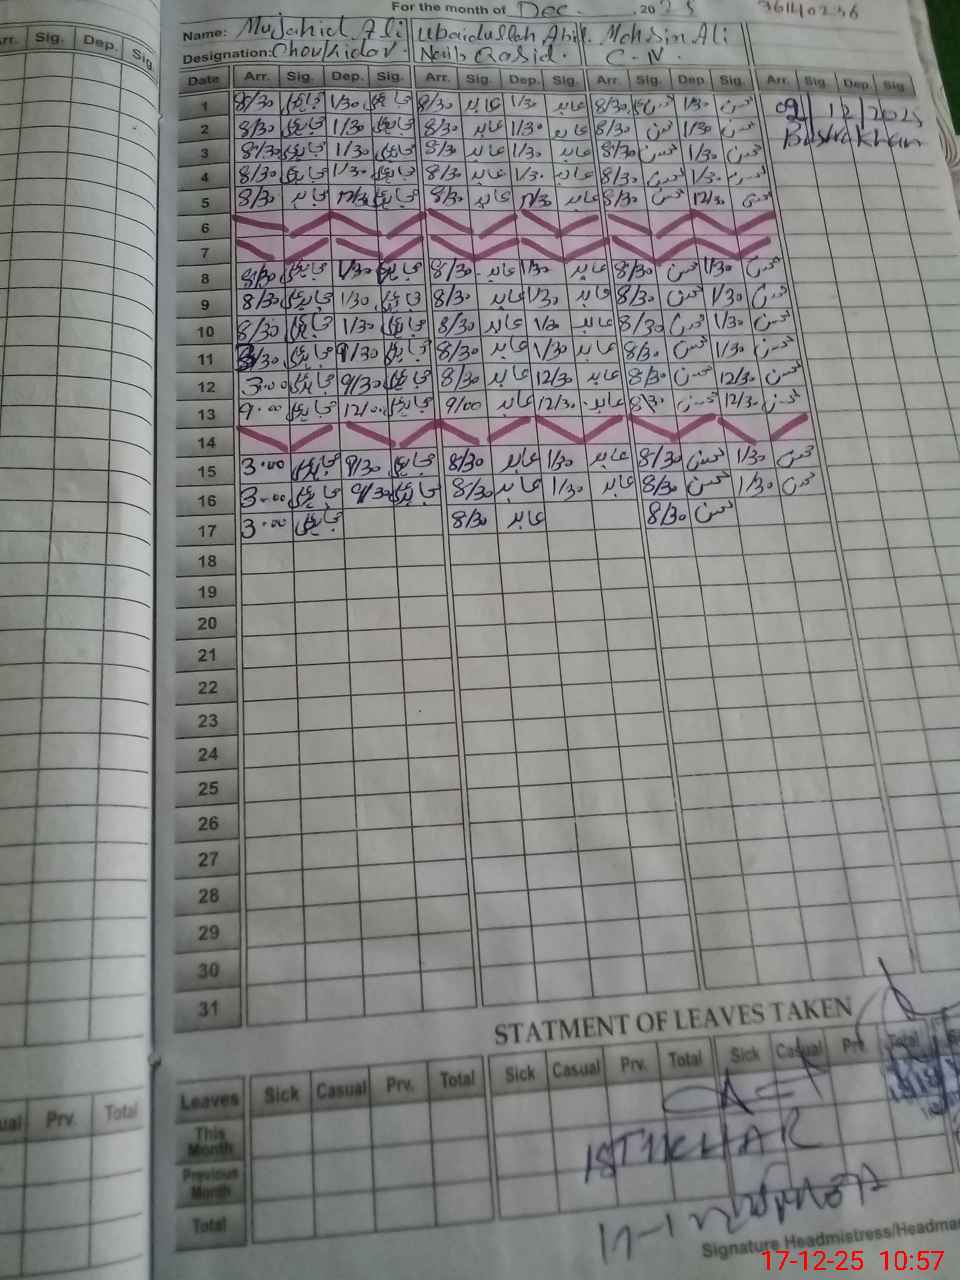 For the month of Dec. 2025 36140256
Name: Mujahid Ali Ubaidullah Abid. Mohsin Ali
Designation: Choukidar. Naib Qasid. C.N.
Arr. Sig. Dep. Sig.
Date Arr. Sig. Dep. Sig. Arr. Sig. Dep. Sig. Arr. Sig. Dep. Sig. Arr. Sig. Dep. Sig.
1 8/30 1/30 8/30 عابد 1/30 عابد 8/30 محسن 1/30 محسن 02/12/2025
2 8/30 1/30 8/30 عابد 1/30 عابد 8/30 محسن 1/30 محسن Bushra Khan
3 8/30 1/30 8/30 عابد 1/30 عابد 8/30 محسن 1/30 محسن
4 8/30 1/30 8/30 عابد 1/30 عابد 8/30 محسن 1/30 محسن
5 8/30 12/30 8/30 عابد 12/30 عابد 8/30 محسن 12/30 محسن
6
7
8 8/30 1/30 8/30 عابد 1/30 عابد 8/30 محسن 1/30 محسن
9 8/30 1/30 8/30 عابد 1/30 عابد 8/30 محسن 1/30 محسن
10 8/30 1/30 8/30 عابد 1/30 عابد 8/30 محسن 1/30 محسن
11 /30 9/30 8/30 عابد 1/30 عابد 8/30 محسن 1/30 محسن
12 3.00 9/30 8/30 عابد 12/30 عابد 8/30 محسن 12/30 محسن
13 9.00 12/00 9/00 عابد 12/30 عابد 8/30 محسن 12/30 محسن
14
15 3.00 9/30 8/30 عابد 1/30 عابد 8/30 محسن 1/30 محسن
16 3.00 9/30 8/30 عابد 1/30 عابد 8/30 محسن 1/30 محسن
17 3.00 8/30 عابد 8/30 محسن
18
19
20
21
22
23
24
25
26
27
28
29
30
31
STATMENT OF LEAVES TAKEN
Leaves Sick Casual Prv. Total Sick Casual Prv. Total Sick Casual Prv. Total
Prv. Total
This Month
ISTIKHAR
Previous Month
Total
Signature Headmistress/Headma
17-12-25 10:57